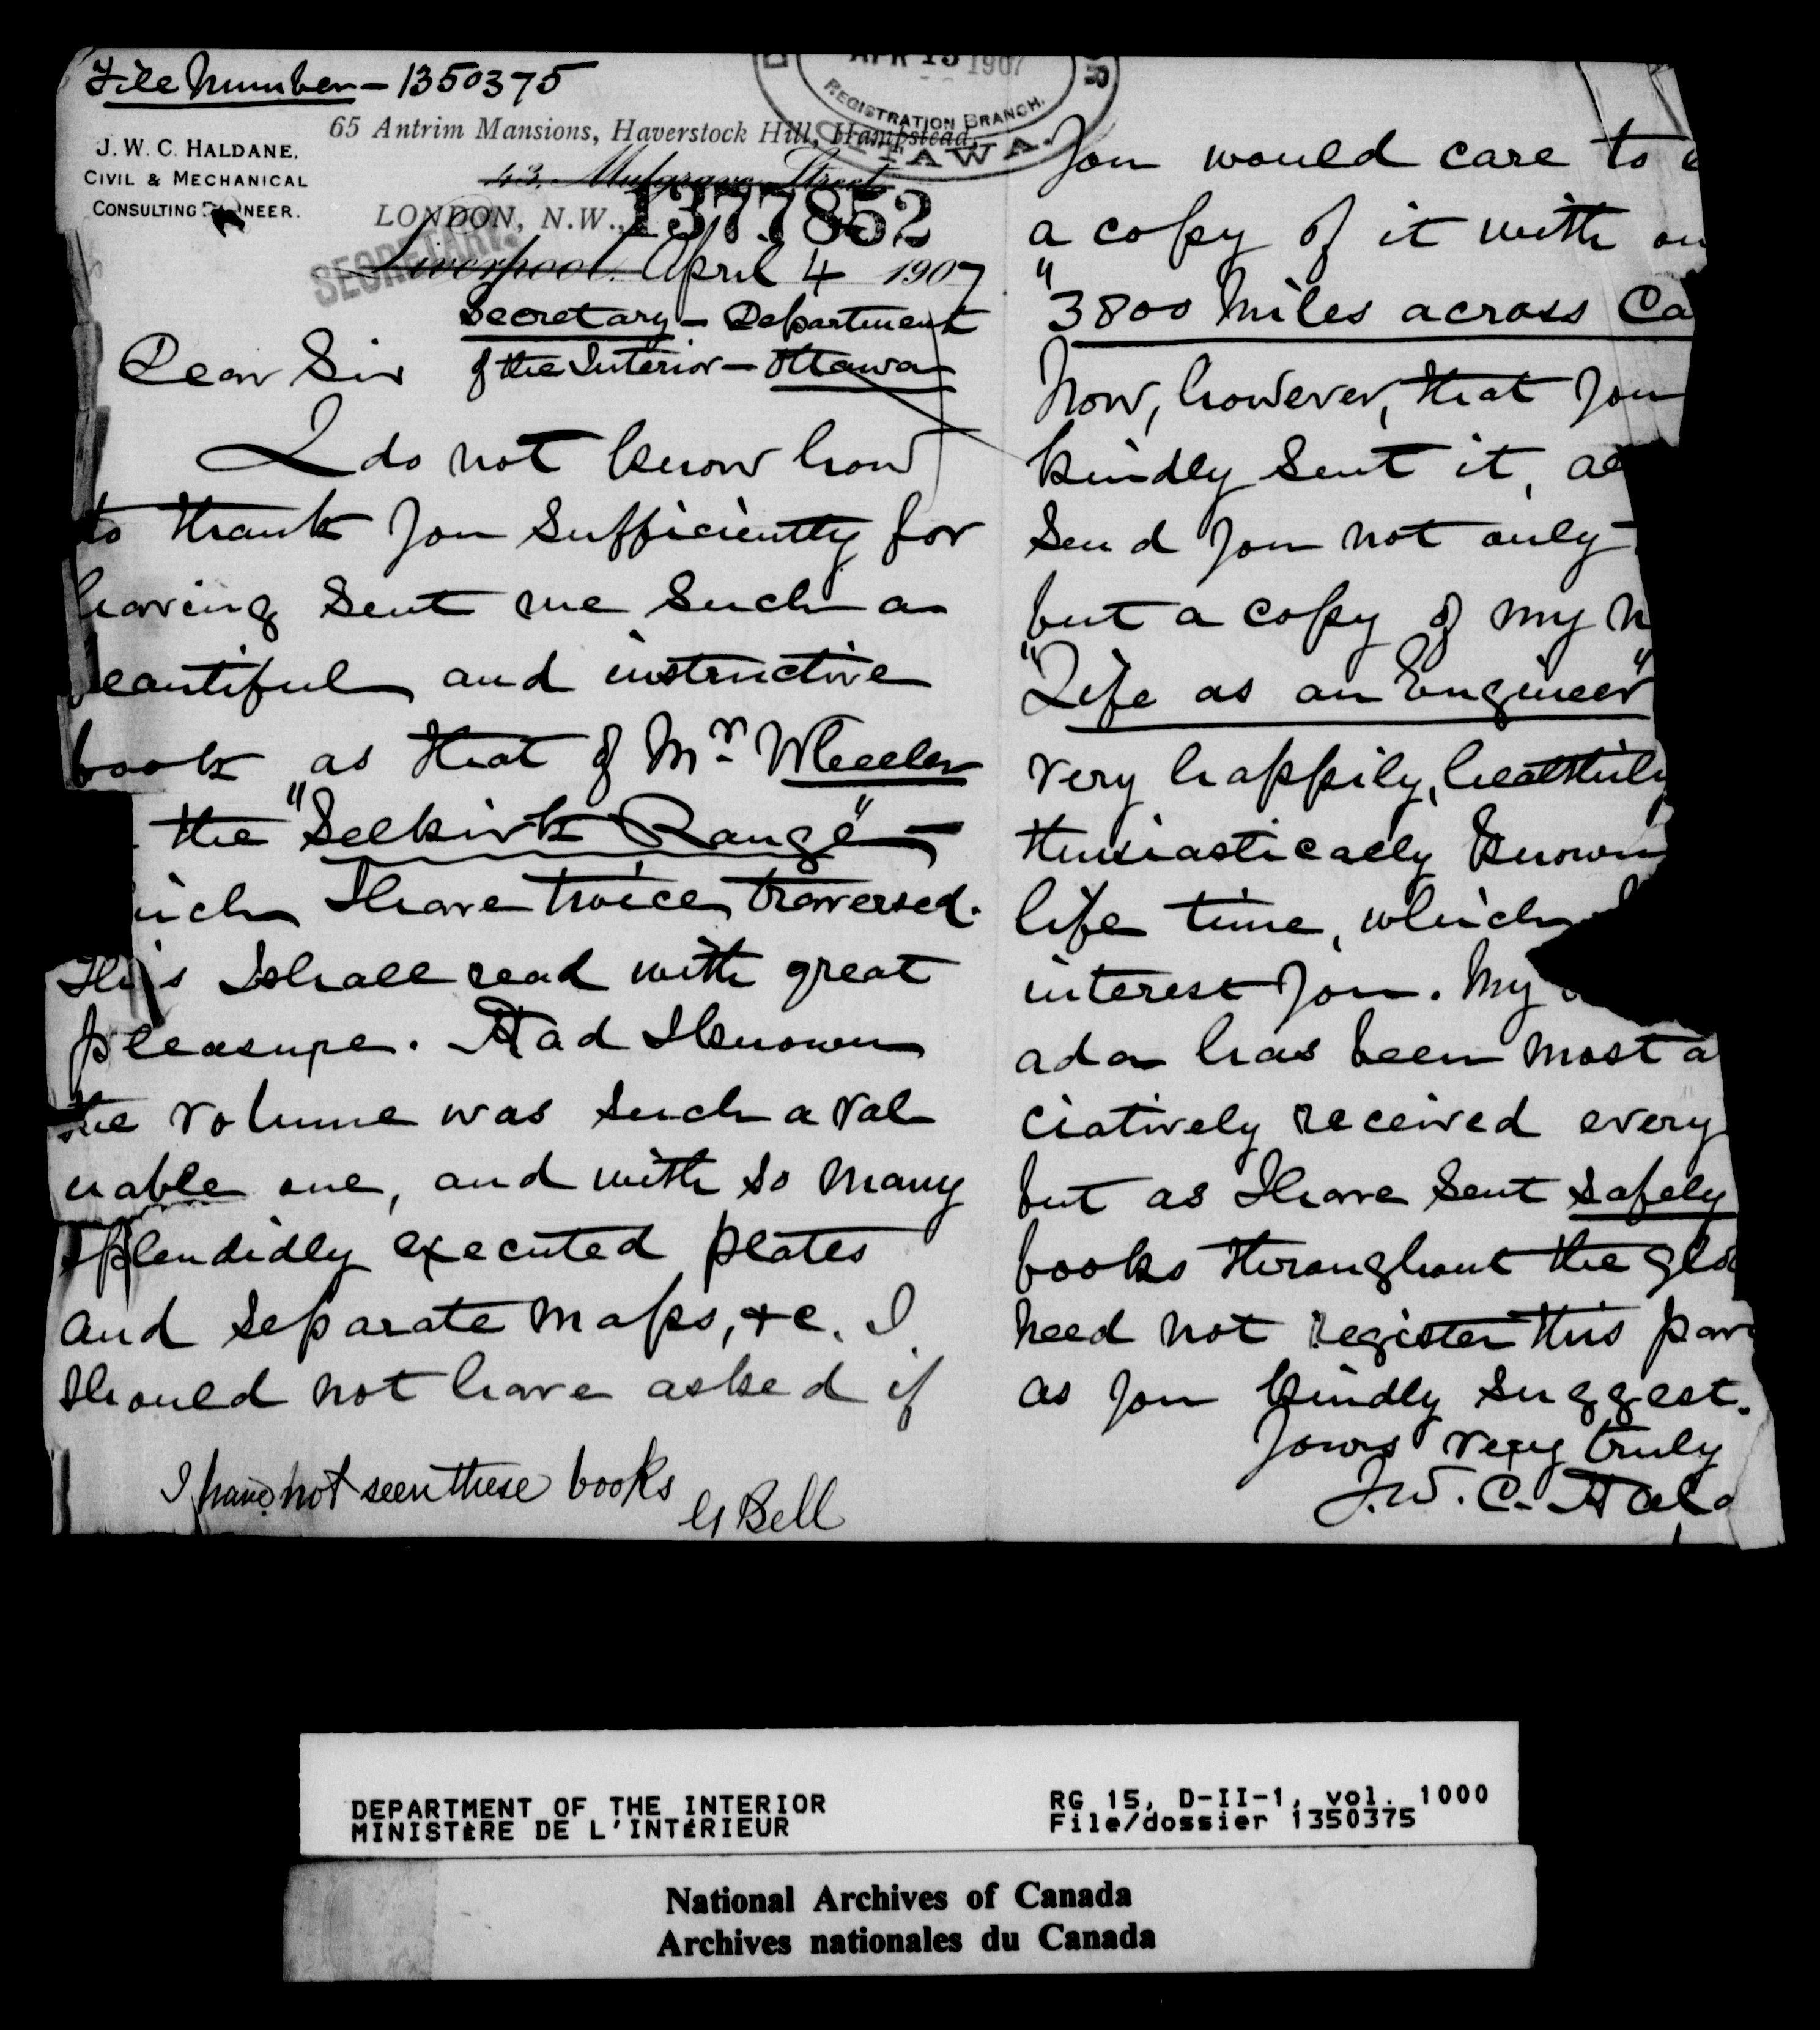 File Number - 1350375
APR 15 1907
REGISTRATION BRANCH.
65 Antrim Mansions, Haverstock Hill, Hampstead,
J. W. C. HALDANE,
CIVIL & MECHANICAL
CONSULTING NEER.
43, Mulgrave Street
LONDON, N.W.,
1377852
SECRETARY.
Liverpool. April 4 1907
Secretary - Department
of the Interior - Ottawa
Dear Sir
I do not know how
to thank you sufficiently for
having sent me such a
eautiful and instructive
book as that of Mr Wheeler
the "Selkirk Range" -
ich I have twice traversed.
This I shall read with great
pleasure. Had I known
the volume was such a val
uable one, and with so many
splendidly executed plates
and separate maps, &c. I
should not have asked if
I have not seen these books
G Bell
you would care to e
a copy of it with ou
"3800 Miles across Ca
Now, however, that you
kindly sent it,
send you not only
but a copy of my n
"Life as an Engineer"
very happily, healthily
thusiastically known
life time, which
interest you. My
ada has been most a
ciatively received every
but as I have sent safely
books throughout the glo
need not register this par
as you kindly suggest.
Yours very truly
J. W. C. Hald
DEPARTMENT OF THE INTERIOR
MINISTÈRE DE L'INTÉRIEUR
RG 15, D-II-1, vol. 1000
File/dossier 1350375
National Archives of Canada
Archives nationales du Canada